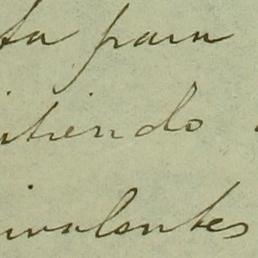 ta para
itiendo
ivalentes